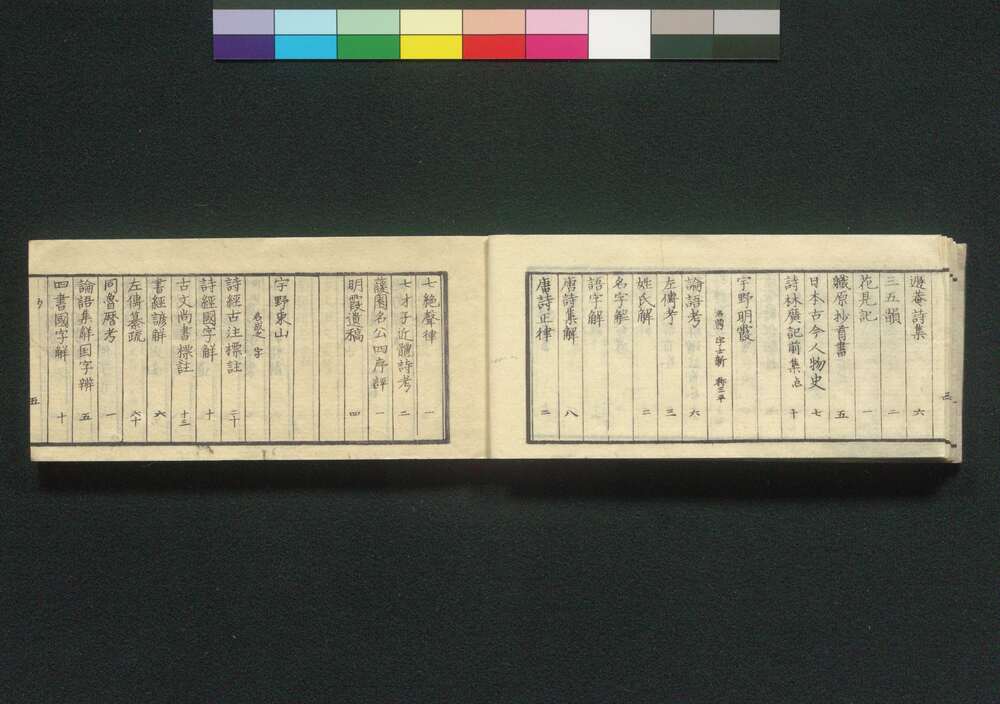 遯菴詩集 六
三五韻 二
花見記 一
職原抄首書 五
日本古今人物史 七
詩林廣記前集点 十
宇野明霞
名鼎 字士新 称三平
論語考 六
左傳考 三
姓氏解 二
名字解
語字解
唐詩集解 八
唐詩正律 二
七絶聲律 一
七才子近體詩考 二
蘐園名公四序評 一
明霞遺稿 四
宇野東山
名成之 字
詩經古注標註 二十
詩經國字解 十
古文尚書標註 十三
書經諺解 六
左傳纂疏 六十
同魯暦考 一
論語集解国字辨 五
四書國字解 十
五